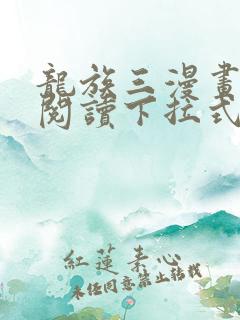 龍族三漫畫
閱讀下拉式
紅蓮素心
未經同意禁止轉載